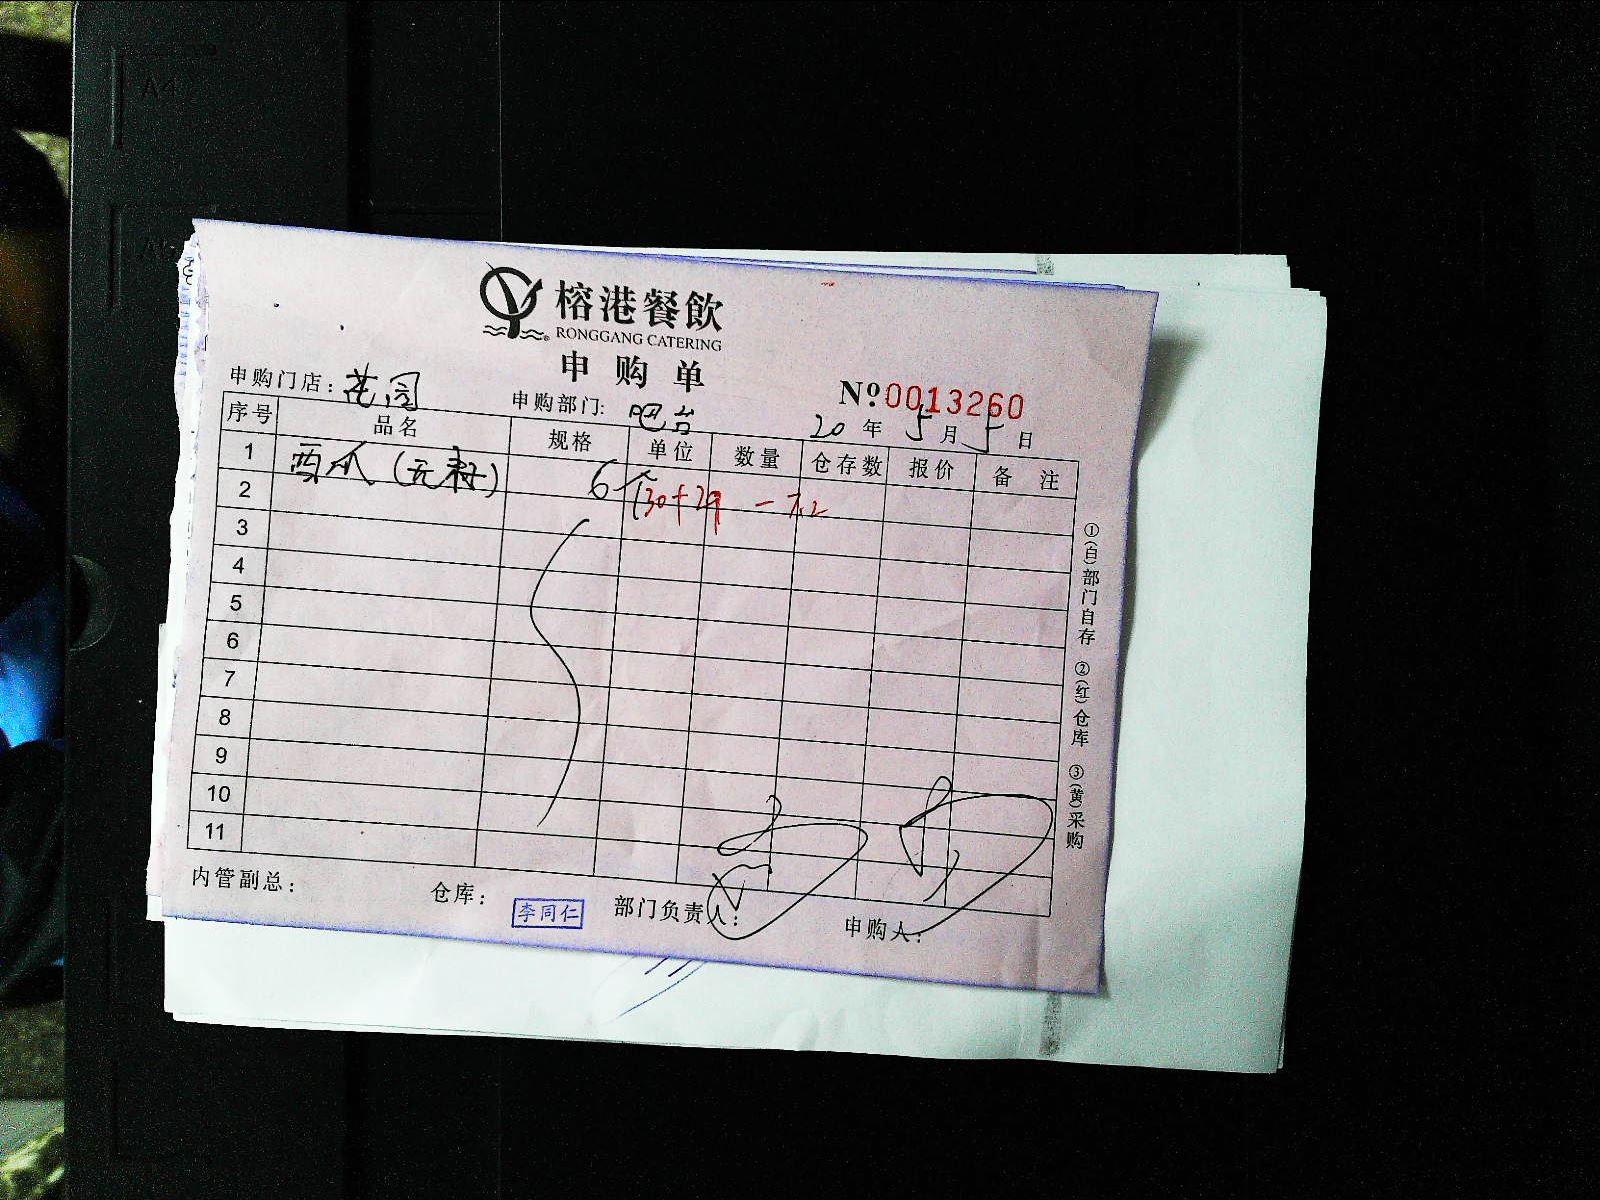 榕港餐飲
RONGGANG CATERING
申购单
申购门店：花园 申购部门：吧台 №0013260
20年5月5日
序号 品名 规格 单位 数量 仓存数 报价 备注
1 西瓜（无籽） 6个
2 30+29 -7.2
3
4
5
6
7
8
9
10
11
①(白)部门自存 ②(红)仓库 ③(黄)采购
内管副总： 仓库：李同仁 部门负责人： 申购人：
A4